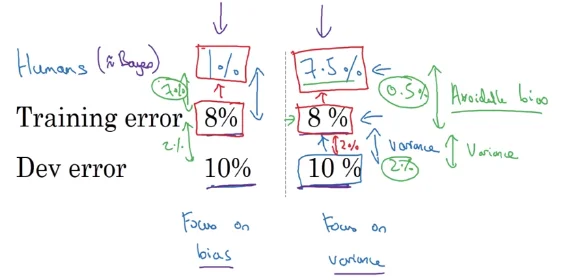 Humans (≈ Bayes) 1% 7.5%
7% 0.5% Avoidable bias
Training error 8% 8 %
2% 2% Variance Variance
Dev error 10% 10 % 2%
Focus on Focus on
bias variance